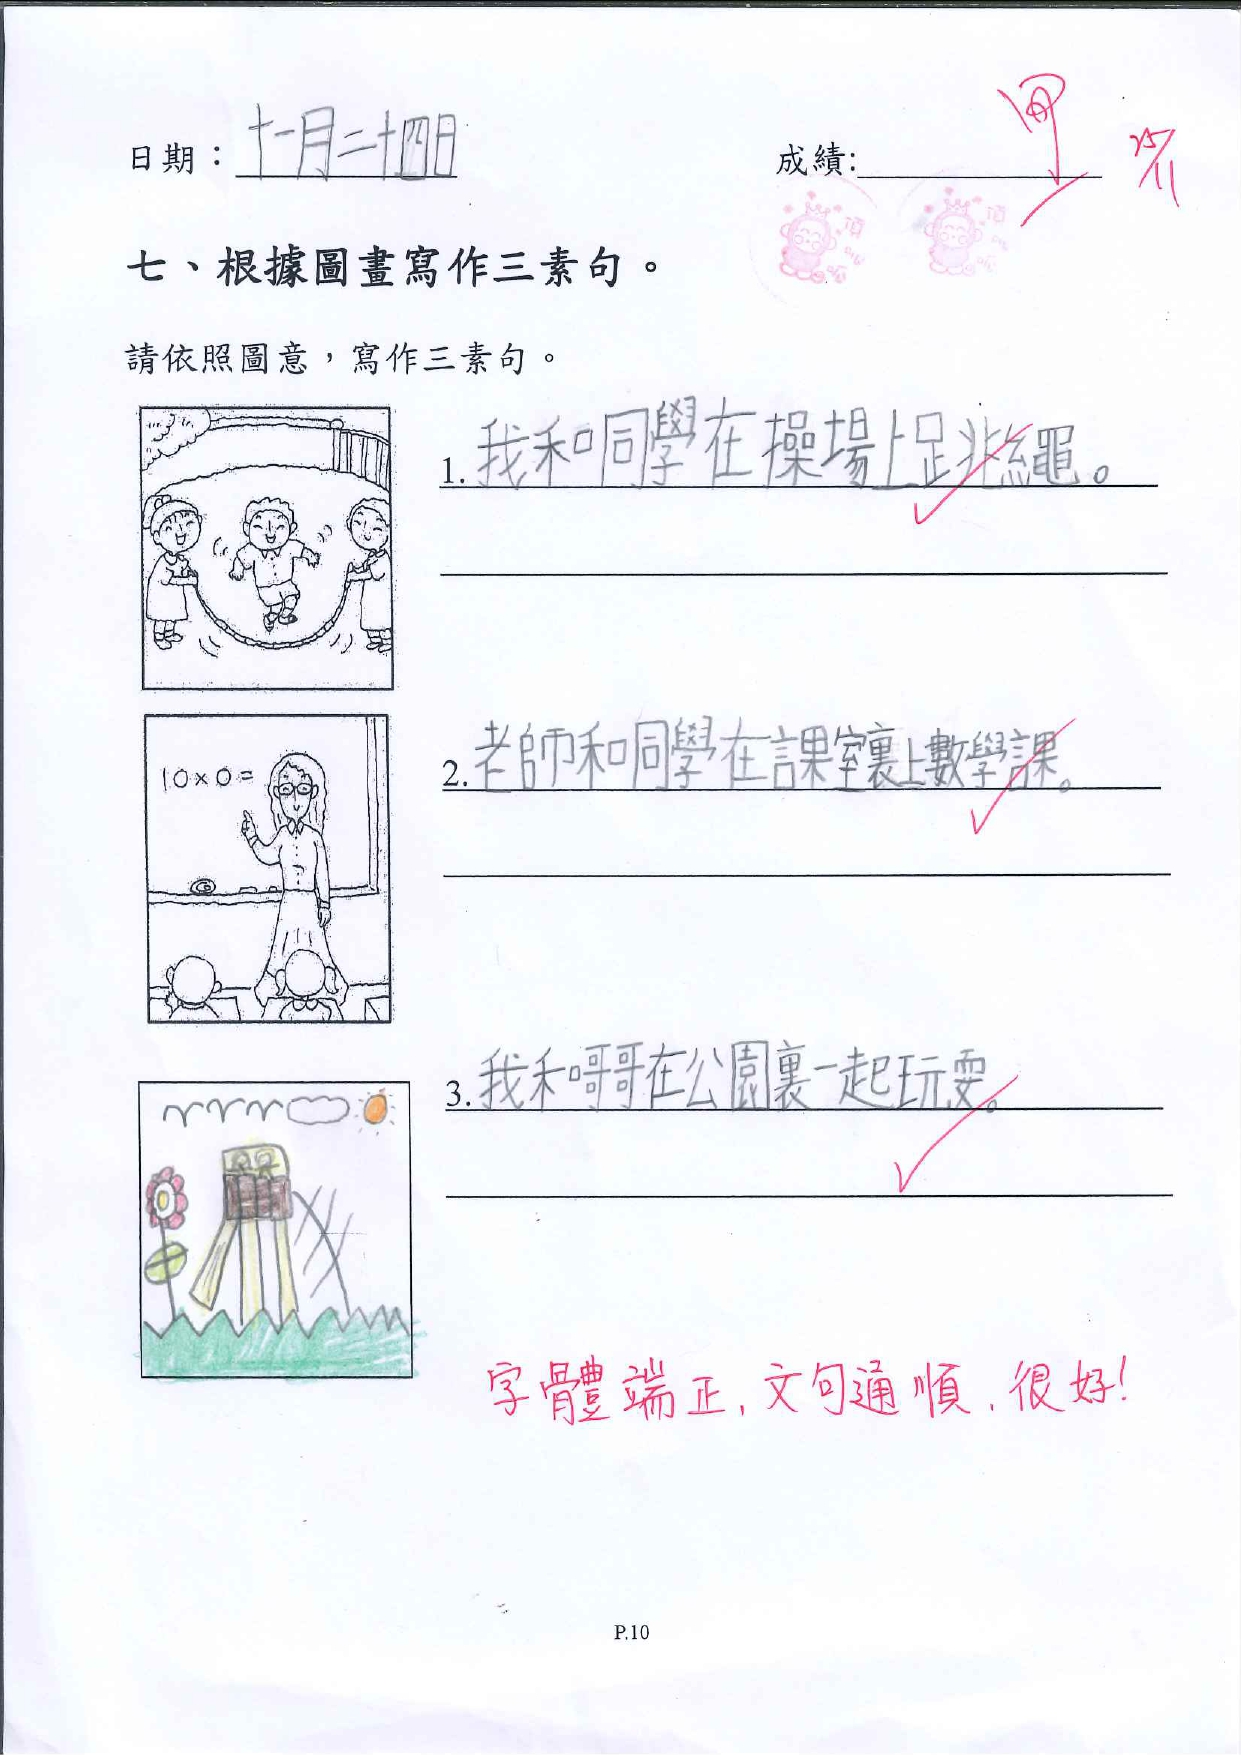 日期：十一月二十四日
成績:
甲
25/11
七、根據圖畫寫作三素句。
請依照圖意，寫作三素句。
1. 我和同學在操場上跳繩。
10×0=
2. 老師和同學在課室裏上數學課。
3. 我和哥哥在公園裏一起玩耍。
字體端正，文句通順，很好！
P.10